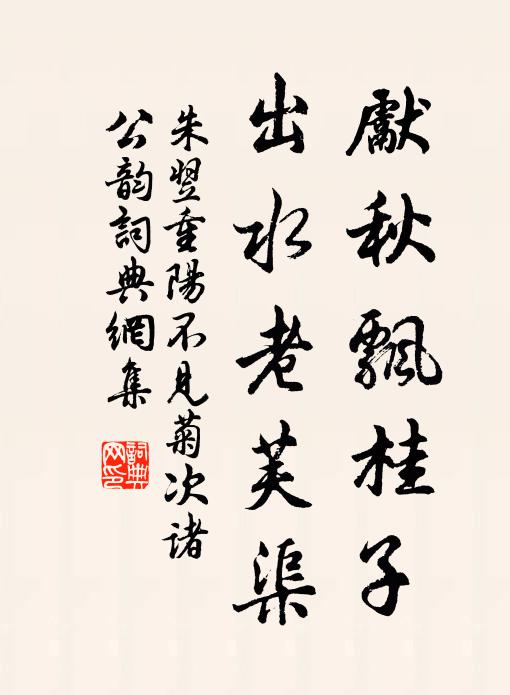 獻秋飄桂子
出水老芙渠
朱翌重陽不見菊次諸
公韵詞典網集
詞典
网印